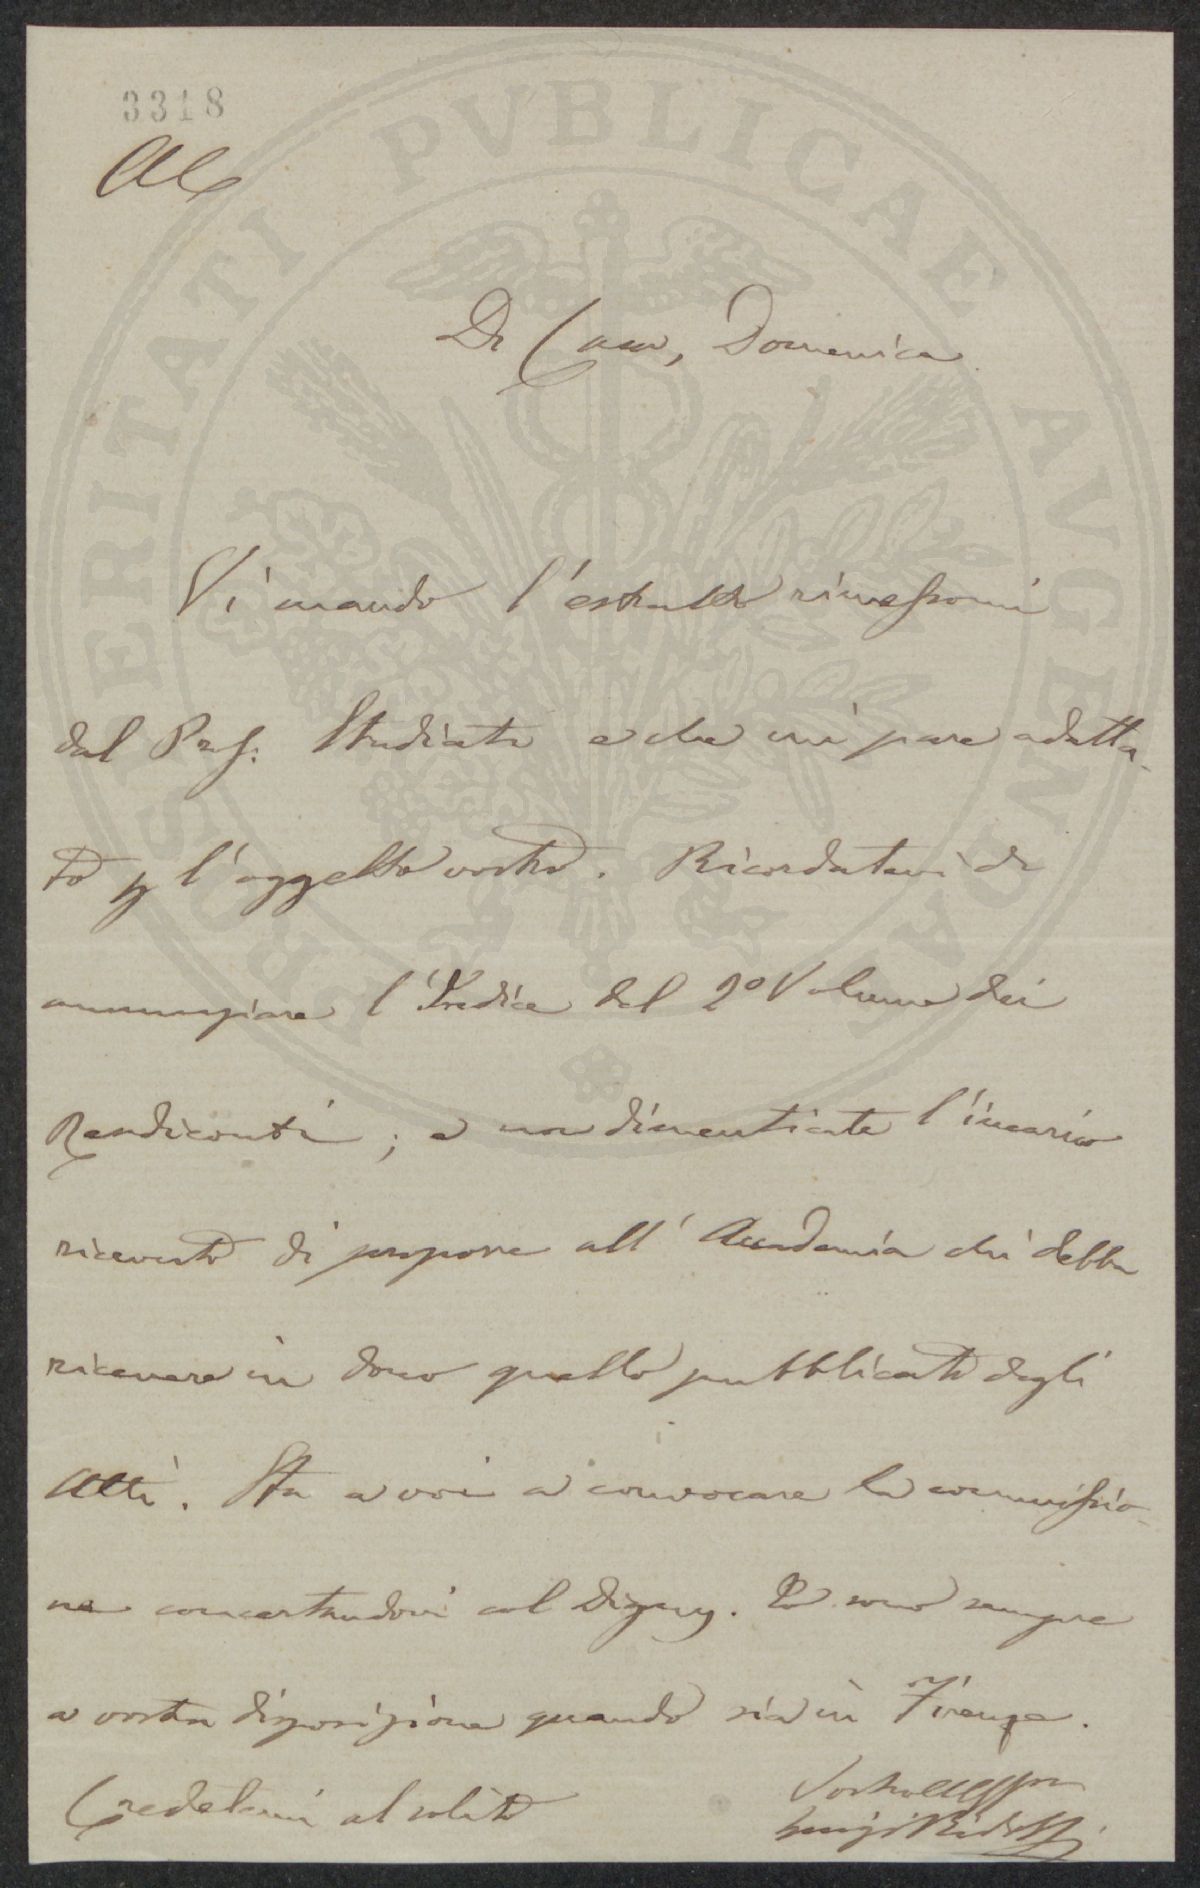 3318
AC
PROSPERITATI PVBLICAE AVGENDAE
Di Casa, Domenica
Vi mando l'estratto rimessomi
dal Prof. Studiati e che mi pare adatta-
to p l'oggetto vostro. Ricordatevi di
annunziare l'Indice del 2º Volume dei
Rendiconti; e non dimenticate l'incarico
ricevuto di proporre all'Accademia chi debba
ricevere in dono quello pubblicato degli
Atti. Sta a voi a convocare la commissio-
ne concertandovi col Digny. Io sono sempre
a vostra disposizione quando sia in Firenze.
Credetemi al solito
Vostro
Luigi Ridolfi